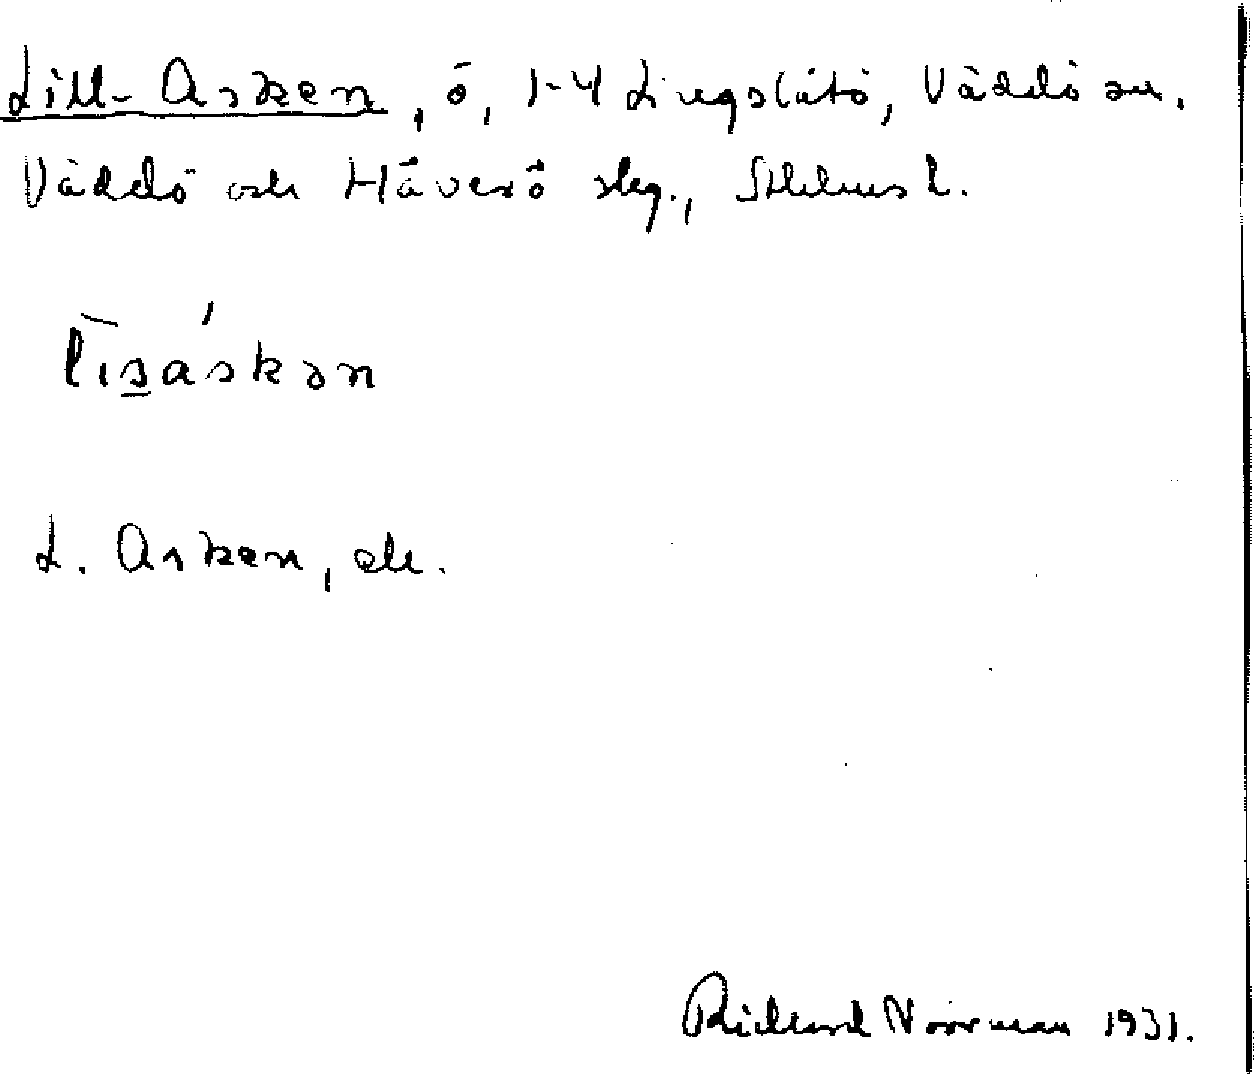 Lill-Asken, ö, 1-4 Lingslätö, Väddö sn.
Väddö och Häverö slg., Sthlms l.
lisáskən
L. Asken, ek.
Richard Norrman 1931.